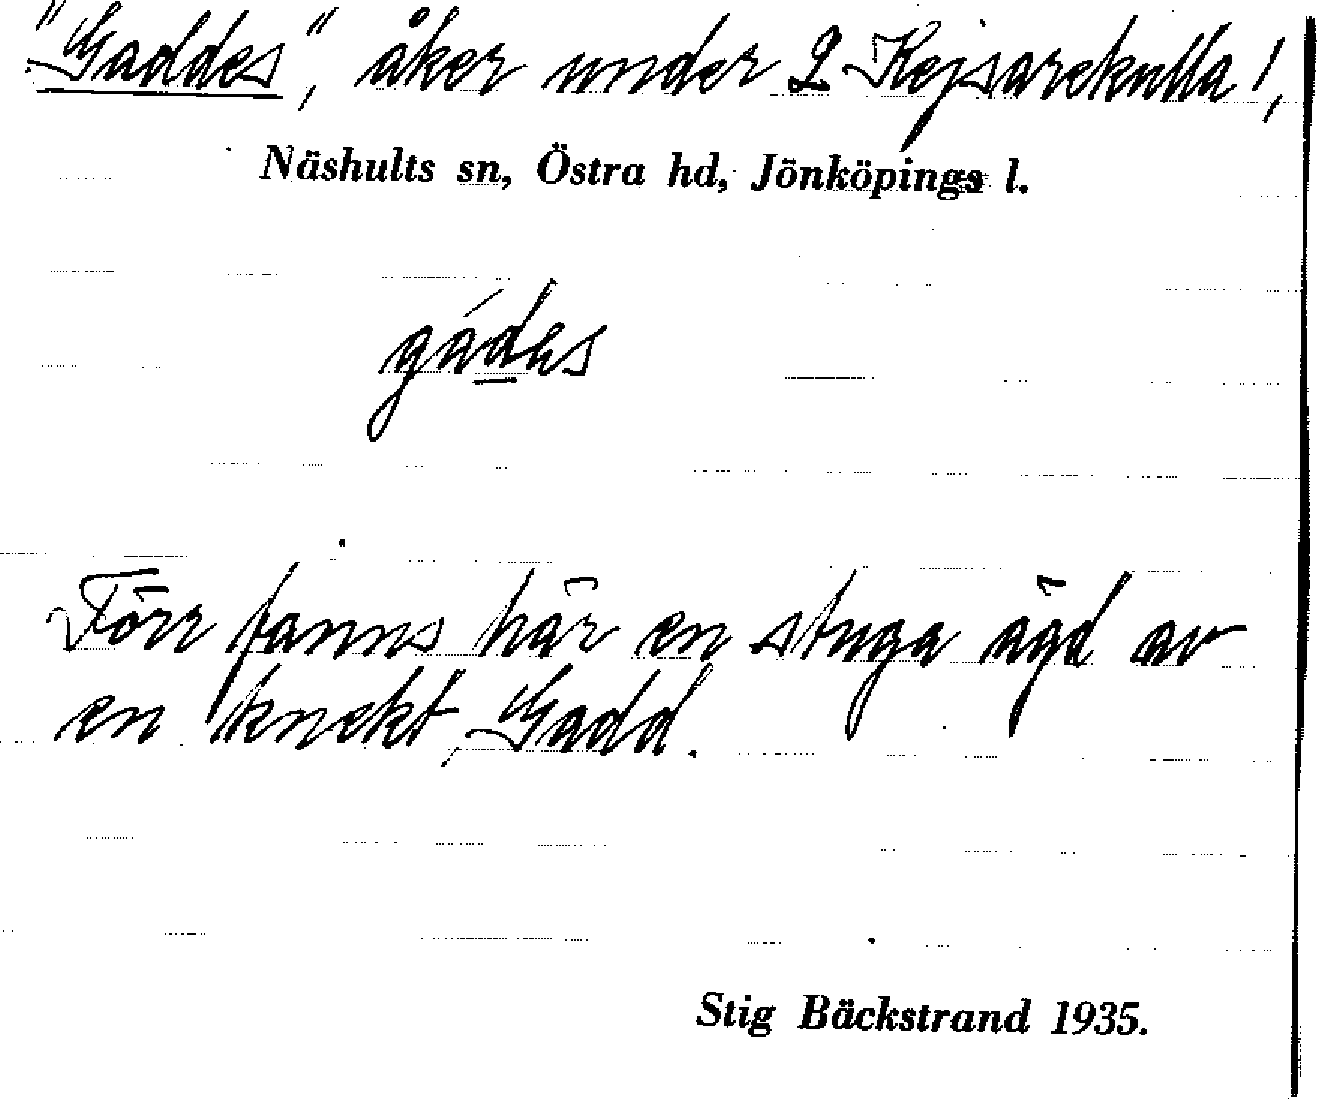 "Gaddes", åker under 2 Kejsarekulla /,
Näshults sn, Östra hd, Jönköpings l.
gádes
Förr fanns här en stuga ägd av
en knekt, Gadd.
Stig Bäckstrand 1935.